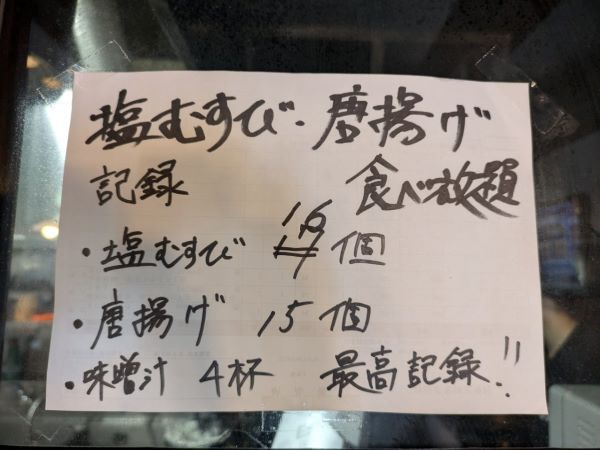 塩むすび・唐揚げ
食べ放題
記録
・塩むすび 16個
・唐揚げ 15個
・味噌汁 4杯 最高記録!!